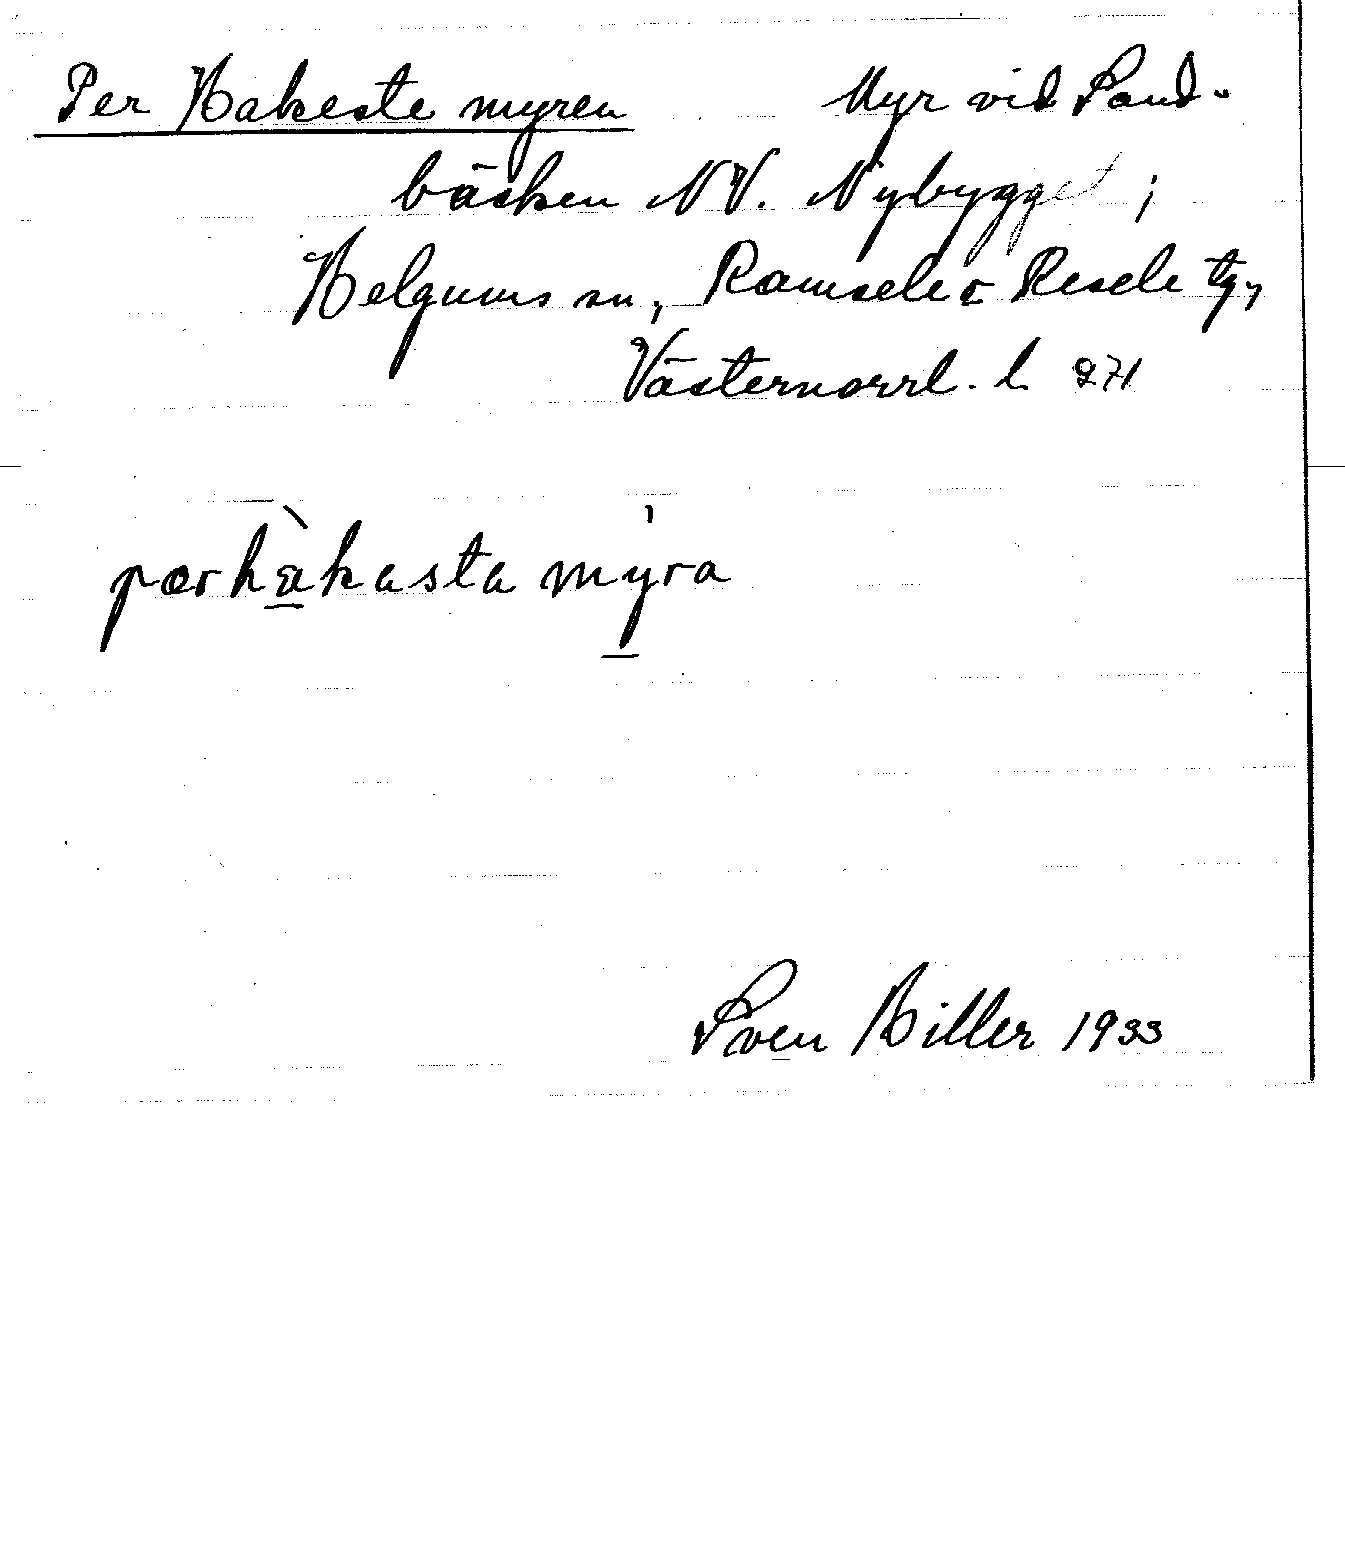 Per Hakeste myren Myr vid Sand-
bäcken NV. Nybygget;
Helgums sn, Ramsele o Resele tg,
Västernorrl. l 271
pærhàkasta mýra
Sven Hiller 1933